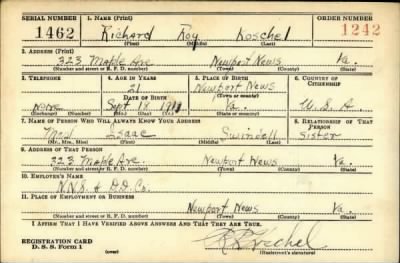 SERIAL NUMBER 1. NAME (Print) ORDER NUMBER
1462 Richard Roy Koschel 1242
(First) (Middle) (Last)
2. ADDRESS (Print)
323 Maple Ave Newport News Va.
(Number and street or R. F. D. number) (Town) (County) (State)
3. TELEPHONE 4. AGE IN YEARS 5. PLACE OF BIRTH 6. COUNTRY OF CITIZENSHIP
21 Newport News
DATE OF BIRTH (Town or county)
none Sept. 18 Va. U. S. A.
(Exchange) (Number) (Mo.) (Day) (Yr.) (State or country)
7. NAME OF PERSON WHO WILL ALWAYS KNOW YOUR ADDRESS 8. RELATIONSHIP OF THAT PERSON
Isaac Swindell Sister
(Mr., Mrs., Miss) (First) (Middle) (Last)
9. ADDRESS OF THAT PERSON
323 Maple Ave. Newport News Va.
(Number and street or R. F. D. number) (Town) (County) (State)
10. EMPLOYER'S NAME
N.N.S. & D.D. Co.
11. PLACE OF EMPLOYMENT OR BUSINESS
Newport News Va.
(Number and street or R. F. D. number) (Town) (County) (State)
I AFFIRM THAT I HAVE VERIFIED ABOVE ANSWERS AND THAT THEY ARE TRUE.
REGISTRATION CARD
D. S. S. Form 1 (over) (Registrant's signature)